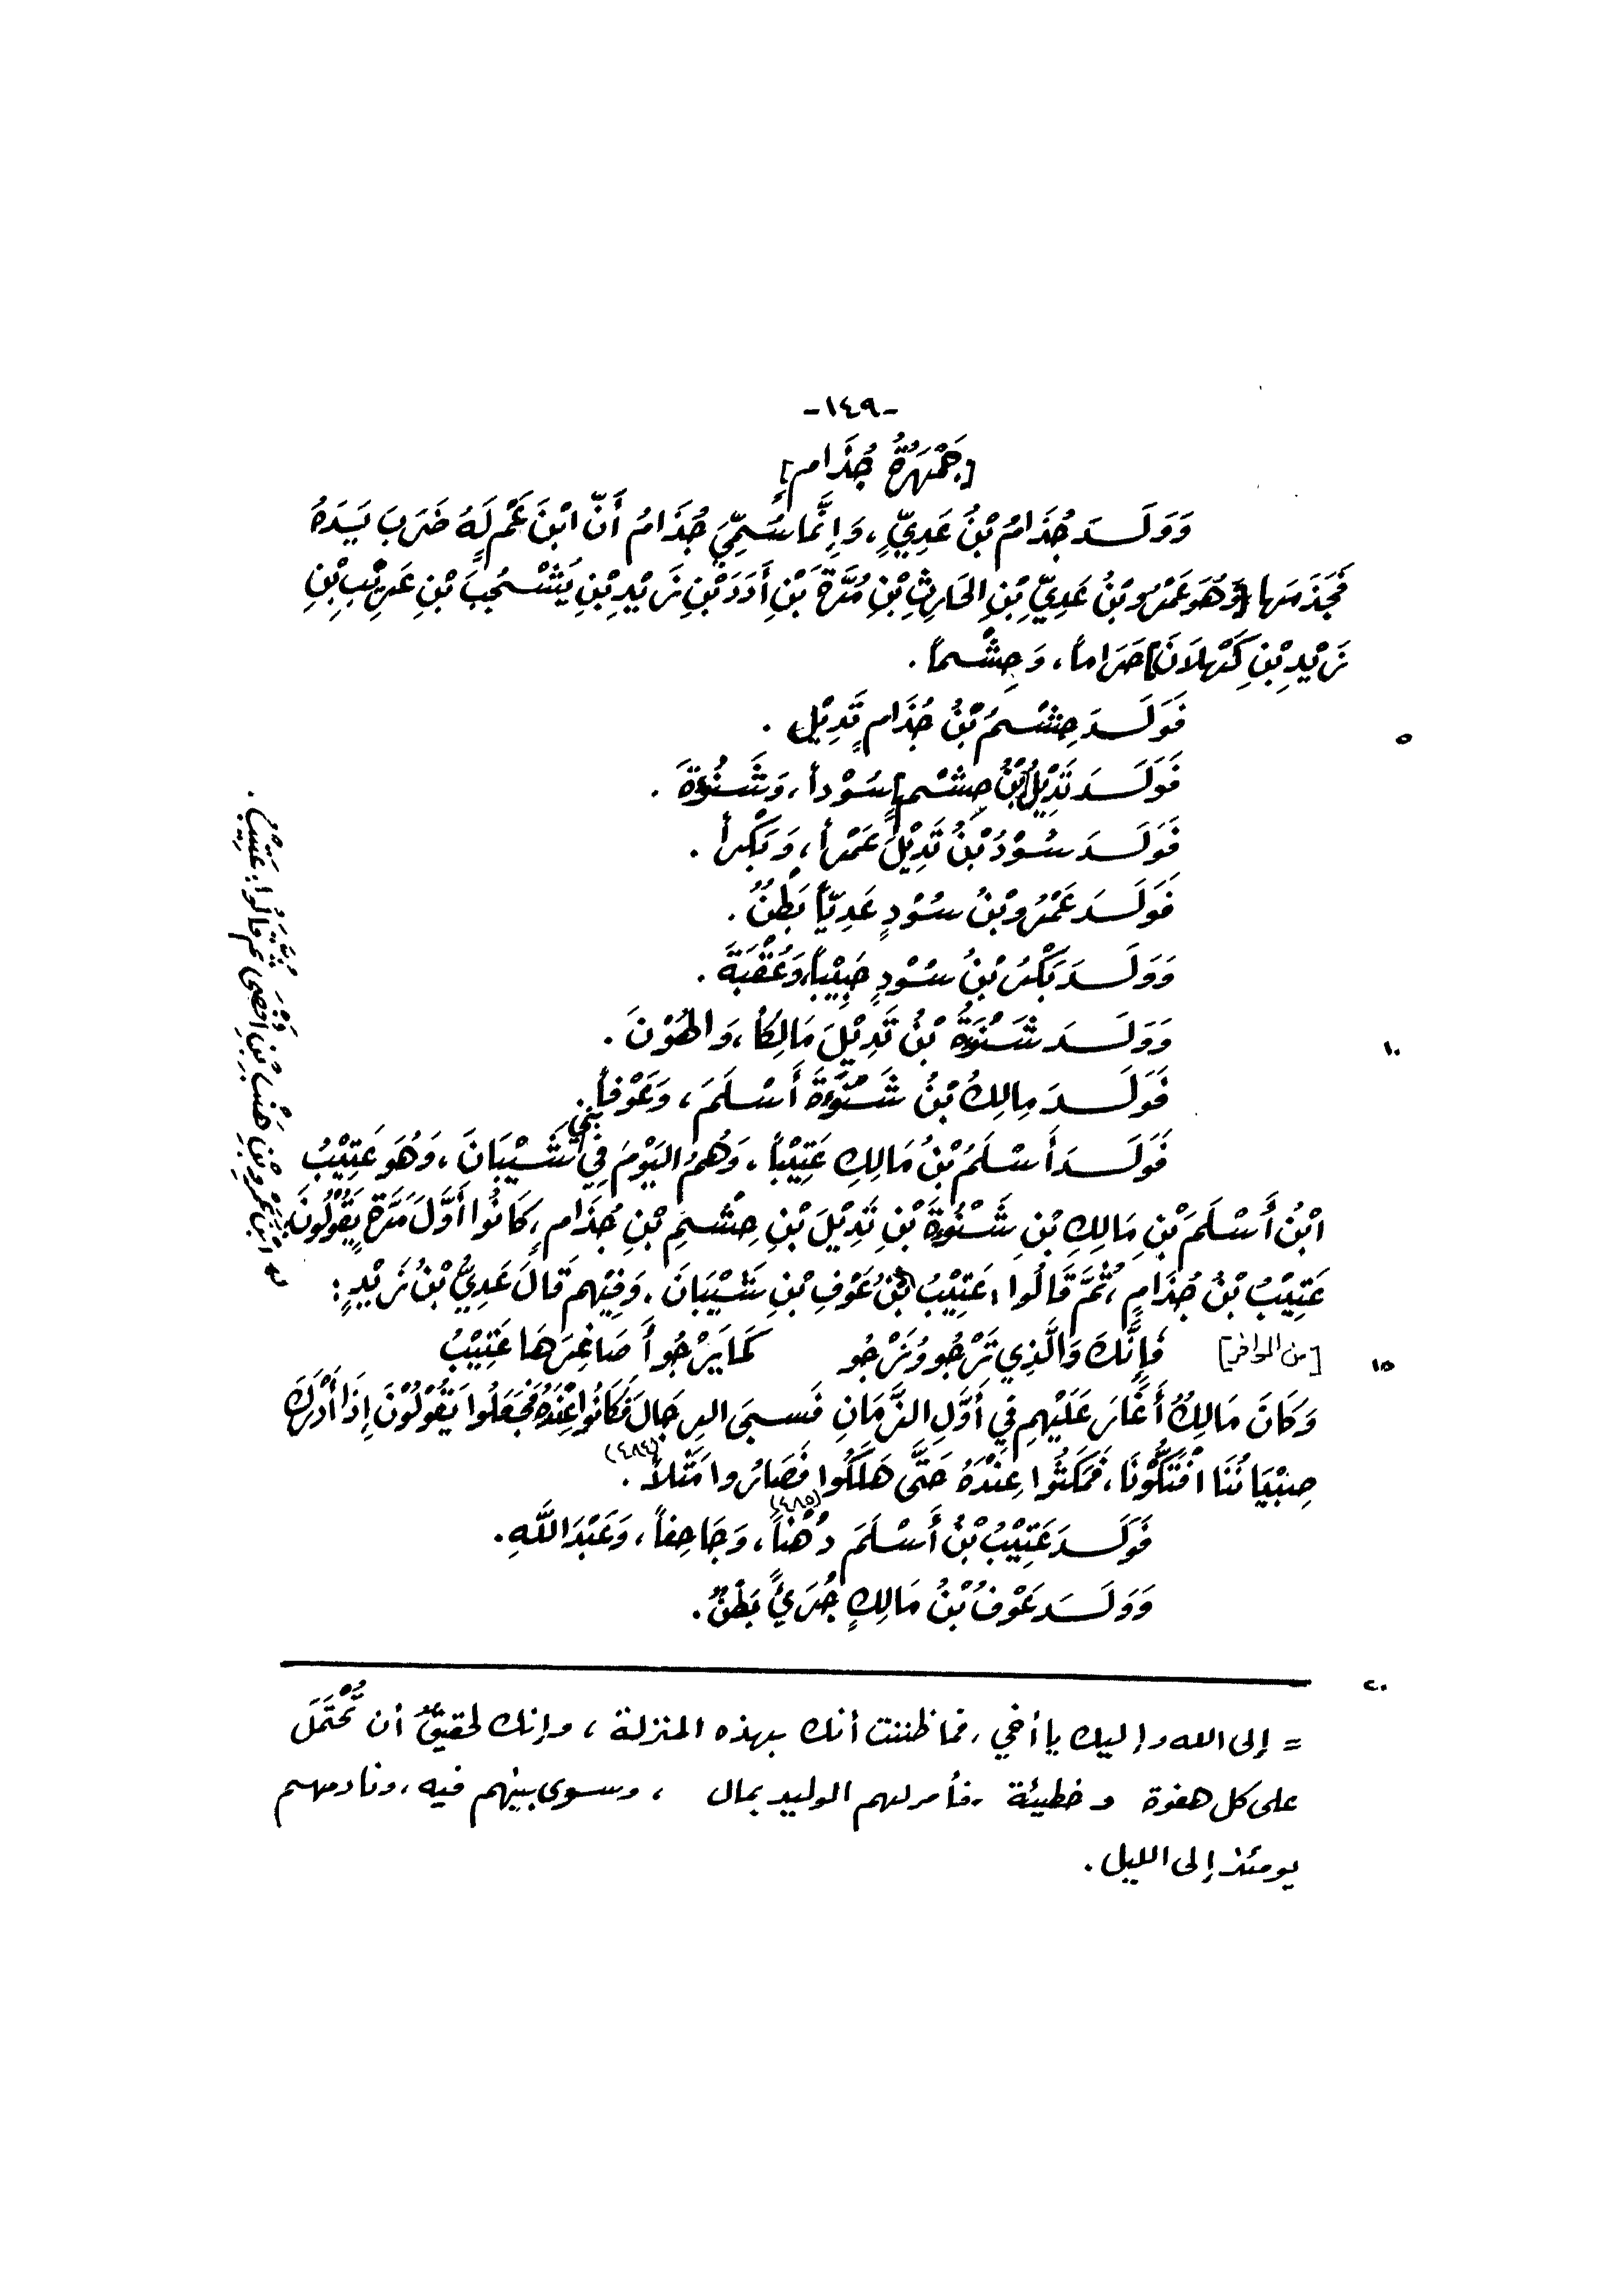 -١٤٩-
[جَمْهَرَةُ جُذَام]
وَوَلَدَ جُذَامُ بْنُ عَدِيٍّ، وَإِنَّمَا سُمِّيَ جُذَامُ أَنَّ ابْنَ عَمٍّ لَهُ ضَرَبَ يَدَهُ
فَجَذَمَها [وَهُوَ عَمْرُو بْنُ عَدِيِّ بْنِ الحَارِثِ بْنِ مُرَّةَ بْنِ أُدَدَ بْنِ زَيْدِ بْنِ يَشْجُبَ بْنِ عَرِيْبِ بْنِ
زَيْدِ بْنِ كَهْلَانَ] حَرَاماً، وَحِشْماً.
فَوَلَدَ حِشْمُ بْنُ جُذَامٍ تَدِيْلَ.
فَوَلَدَ تَدِيْلُ [بْنُ حِشْمٍ] سُوْداً، وَشَنُوْءَةَ.
فَوَلَدَ سُوْدُ بْنُ تَدِيْلَ عَمْراً، وَبَكْراً.
فَوَلَدَ عَمْرُو بْنُ سُوْدٍ عَدِيّاً بَطْنٌ.
وَوَلَدَ بَكْرُ بْنُ سُوْدٍ حَبِيْباً، وَعُقْبَةَ.
وَوَلَدَ شَنُوْءَةُ بْنُ تَدِيْلَ مَالِكاً، وَالهُوْنَ.
فَوَلَدَ مَالِكُ بْنُ شَنُوْءَةَ أَسْلَمَ، وَعَوْفاً.
فَوَلَدَ أَسْلَمُ بْنُ مَالِكٍ عَتِيْباً، وَهُمُ اليَوْمَ فِي بَنِي شَيْبَانَ، وَهُوَ عَتِيْبُ
ابْنُ أَسْلَمَ بْنِ مَالِكِ بْنِ شَنُوْءَةَ بْنِ تَدِيْلَ بْنِ حِشْمِ بْنِ جُذَامٍ، كَانُوا أَوَّلَ مَرَّةٍ يَقُوْلُونَ:
عَتِيْبُ بْنُ جُذَامٍ، ثُمَّ قَالُوا: عَتِيْبُ بْنُ عَوْفِ بْنِ شَيْبَانَ. وَفِيْهِم قَالَ عَدِيُّ بْنُ زَيْدٍ:
[من الوافر] فَإِنَّكَ وَالَّذِي تَرْجُو وُنَرْجُو كَمَا يَرْجُو أَصَاغِرَهَا عَتِيْبُ
وَكَانَ مَالِكٌ أَغَارَ عَلَيْهِم فِي أَوَّلِ الزَّمَانِ فَسبَى الرِجَالَ فَكَانُوا عِنْدَهُ فَجَعَلُوا يَقُوْلُوْنَ إِذَا أَدْرَكَ
صِبْيَانُنَا افْتَكُّوْنَا، فَمَكَثُوا عِنْدَهُ حَتَّى هَلَكُوا فَصَارُوا مَثَلاً (٤٨٤).
فَوَلَدَ عَتِيْبُ بْنُ أَسْلَمَ دُهْناً (٤٨٥)، وَجَاحِفاً، وَعَبْدَ اللَّهِ.
وَوَلَدَ عَوْفُ بْنُ مَالِكٍ جُرَيٌّ بَطْنٌ.
= إلى الله وإليك يا أخي، فما ظننت أنك بهذه المنزلة، وإنك لحقيقٌ أن تُحْتَمَلَ
على كل هفوة وخطيئة، فأمر لهم الوليد بمال، وسوى بينهم فيه، ونادمهم
يومئذ إلى الليل.
٥
١٠
١٥
٢٠